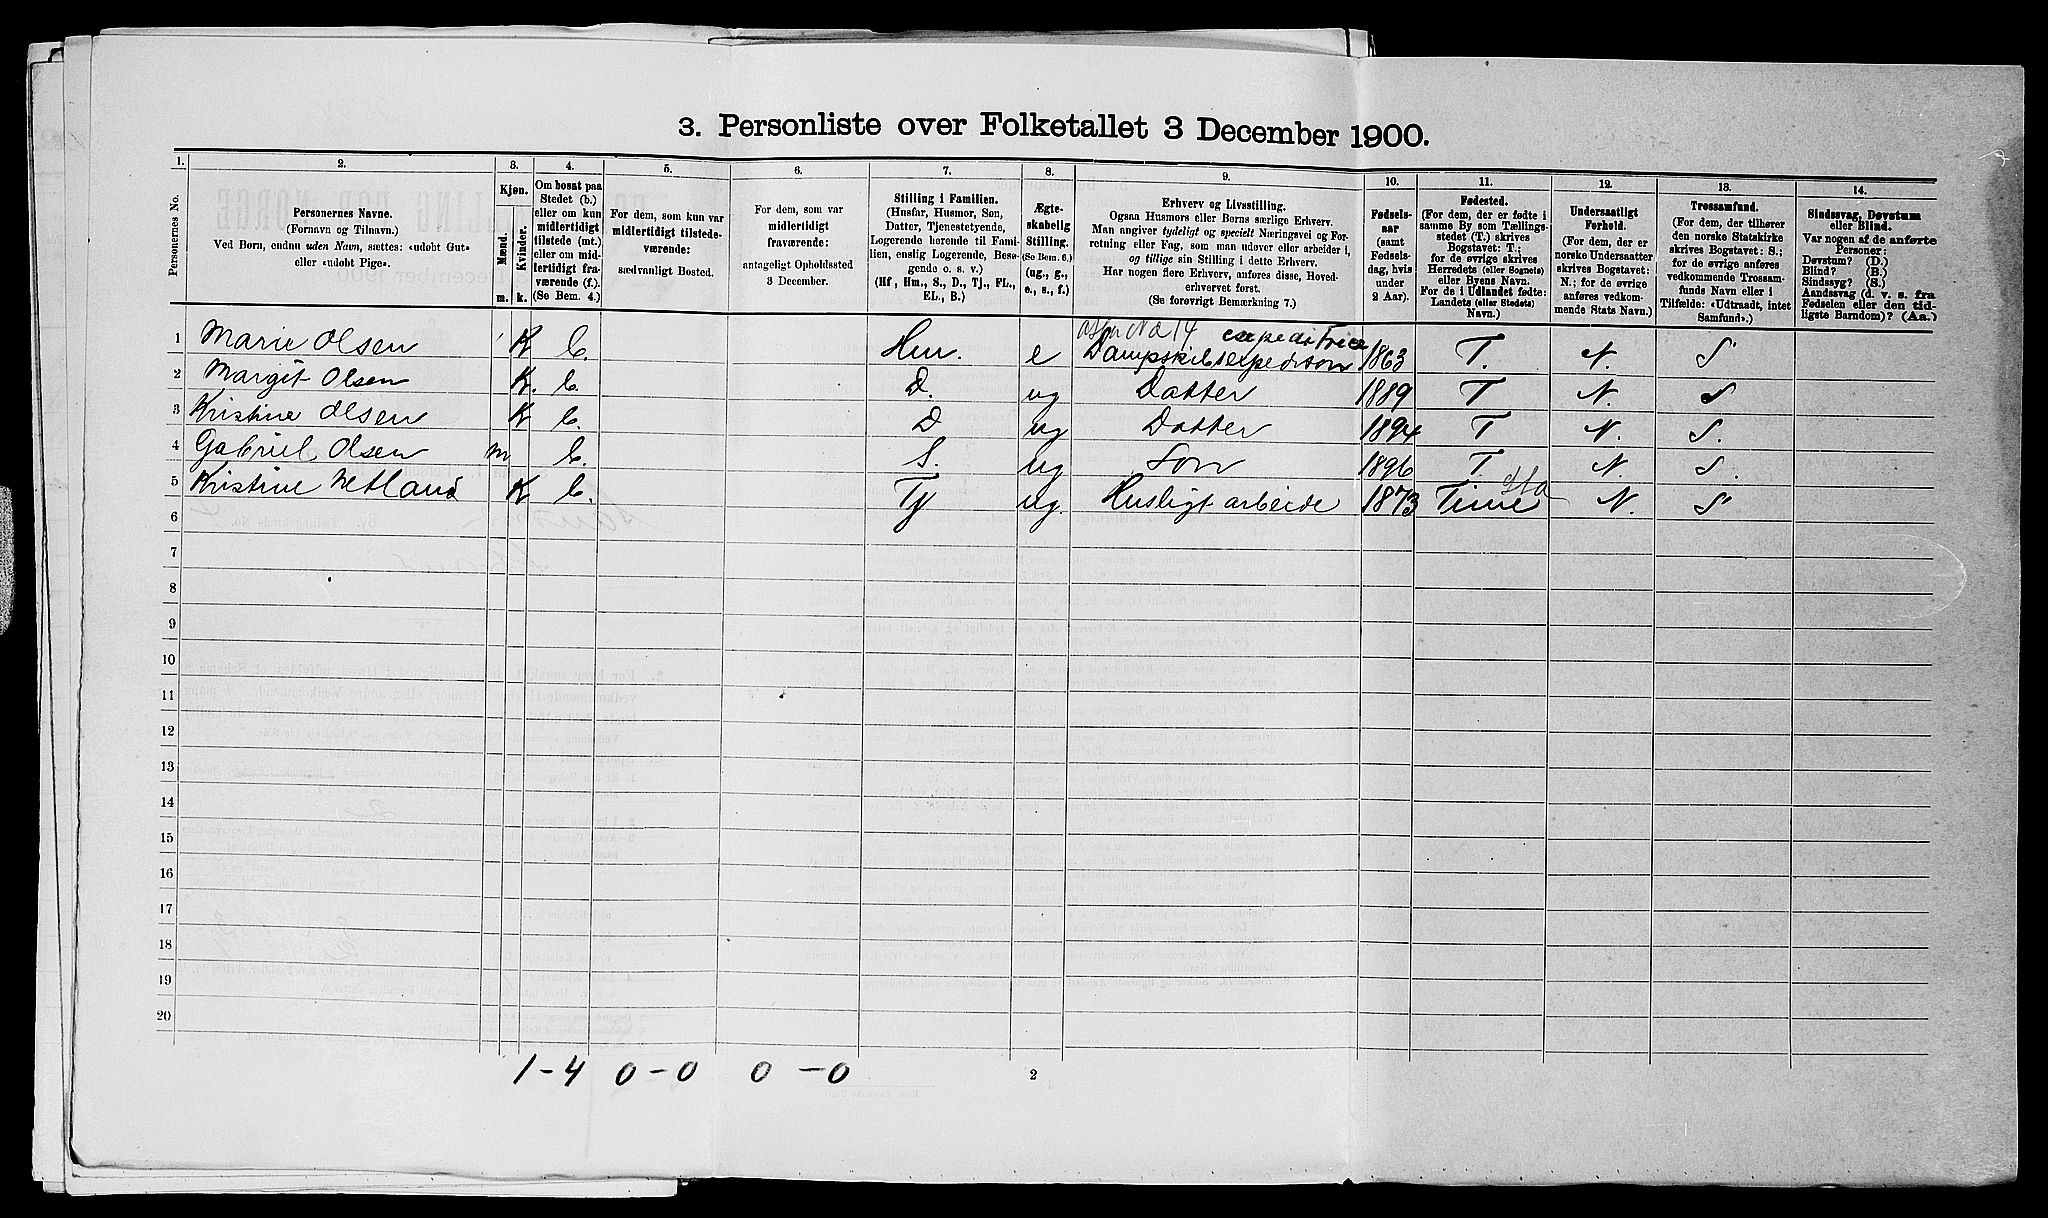 3. Personliste over Folketallet 3 December 1900.
1. 2. 3. 4. 5. 6. 7. 8. 9. 10. 11. 12. 13. 14.
Personernes No.
Personernes Navne.
(Fornavn og Tilnavn.)
Ved Børn, endnu uden Navn, sættes: «udøbt Gut»
eller «udøbt Pige».
Kjøn.
Mænd.
Kvinder.
m. k.
Om bosat paa
Stedet (b.)
eller om kun
midlertidigt
tilstede (mt.)
eller om mid-
lertidigt fra-
værende (f.).
(Se Bem. 4.)
For dem, som kun var
midlertidigt tilstede-
værende:
sædvanligt Bosted.
For dem, som var
midlertidigt
fraværende:
antageligt Opholdssted
3 December.
Stilling i Familien.
(Husfar, Husmor, Søn,
Datter, Tjenestetyende,
Logerende hørende til Fami-
lien, enslig Logerende, Besø-
gende o. s. v.)
(Hf, Hm., S., D., Tj., FL.,
EL., B.)
Ægte-
skabelig
Stilling.
(Se Bem. 6.)
(ug., g.,
e., s., f.)
Erhverv og Livsstilling.
Ogsaa Husmors eller Børns særlige Erhverv.
Man angiver tydeligt og specielt Næringsvei og For-
retning eller Fag, som man udøver eller arbeider i,
og tillige sin Stilling i dette Erhverv.
Har nogen flere Erhverv, anføres disse, Hoved-
erhvervet først.
(Se forøvrigt Bemærkning 7.)
Fødsels-
aar
(samt
Fødsels-
dag, hvis
under
2 Aar).
Fødested.
(For dem, der er fødte i
samme By som Tællings-
stedet (T.) skrives
Bogstavet: T.;
for de øvrige skrives
Herredets (eller Sognets)
eller Byens Navn.
For de i Udlandet fødte:
Landets (eller Stedets)
Navn.)
Undersaatligt
Forhold.
(For dem, der er
norske Undersaatter
skrives Bogstavet:
N.; for de øvrige
anføres vedkom-
mende Stats Navn.)
Trossamfund.
(For dem, der tilhører
den norske Statskirke
skrives Bogstavet: S.;
for de øvrige anføres
vedkommende Trossam-
funds Navn eller i
Tilfælde: «Udtraadt, intet
Samfund».)
Sindssvag, Døvstum
eller Blind.
Var nogen af de anførte
Personer:
Døvstum? (D.)
Blind? (B.)
Sindssyg? (S.)
Aandssvag (d. v. s. fra
Fødselen eller den tid-
ligste Barndom)? (Aa.)
expeditrice
1 Marie Olsen K b. Hm. e Dampskibsexpedition 1863 T. N. S
2 Margit Olsen K. b. D. ug Datter 1889 T N. S
3 Kristine Olsen K b. D ug Datter 1894 T N. S.
4 Gabriel Olsen m b. S. ug Søn 1896 T. N. S.
5 Kristine Netland K b. Tj ug. Husligt arbeide 1873 Time N. S
6
7
8
9
10
11
12
13
14
15
16
17
18
19
20
1 - 4 0 - 0 0 - 0
2